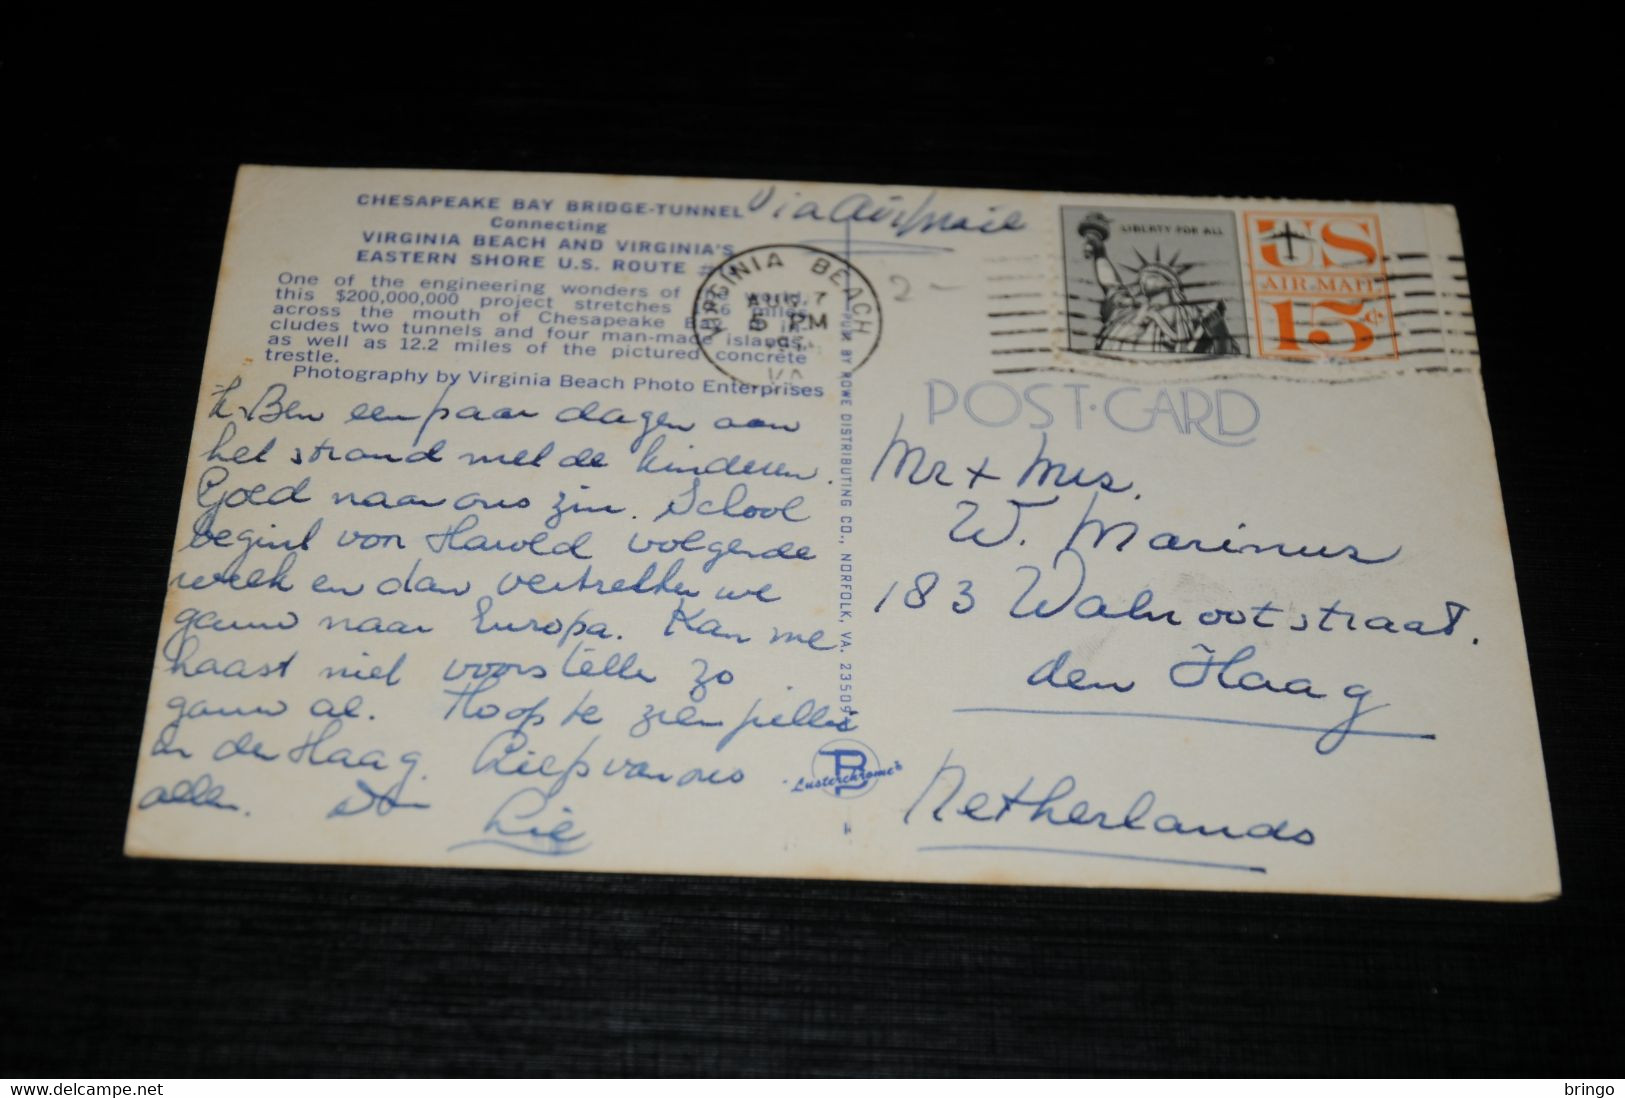 CHESAPEAKE BAY BRIDGE-TUNNEL
Connecting
VIRGINIA BEACH AND VIRGINIA'S
EASTERN SHORE U.S. ROUTE
One of the engineering wonders of the world,
this $200,000,000 project stretches miles
across the mouth of Chesapeake Bay. It in-
cludes two tunnels and four man-made islands,
as well as 12.2 miles of the pictured concrete
trestle.
Photography by Virginia Beach Photo Enterprises
Via Air Mail
VIRGINIA BEACH
AUG 7
5 PM
VA
2 -
LIBERTY FOR ALL
US
AIR MAIL
15¢
POST-CARD
Ik Ben een paar dagen aan
het strand met de kinderen.
Goed naar ons zin. School
begint von Harold volgende
week en dan vertrekken we
gauw naar Europa. Kan me
haast niet voorstellen zo
gauw al. Hoop te zien jullie
in den Haag. Liefs van ons
allen.
Lie
PUB. BY ROWE DISTRIBUTING CO., NORFOLK, VA. 23509
Lusterchrome
Mr + Mrs.
W. Marinus
183 Walnootstraat.
den Haag
Netherlands
delcampe.net
bringo